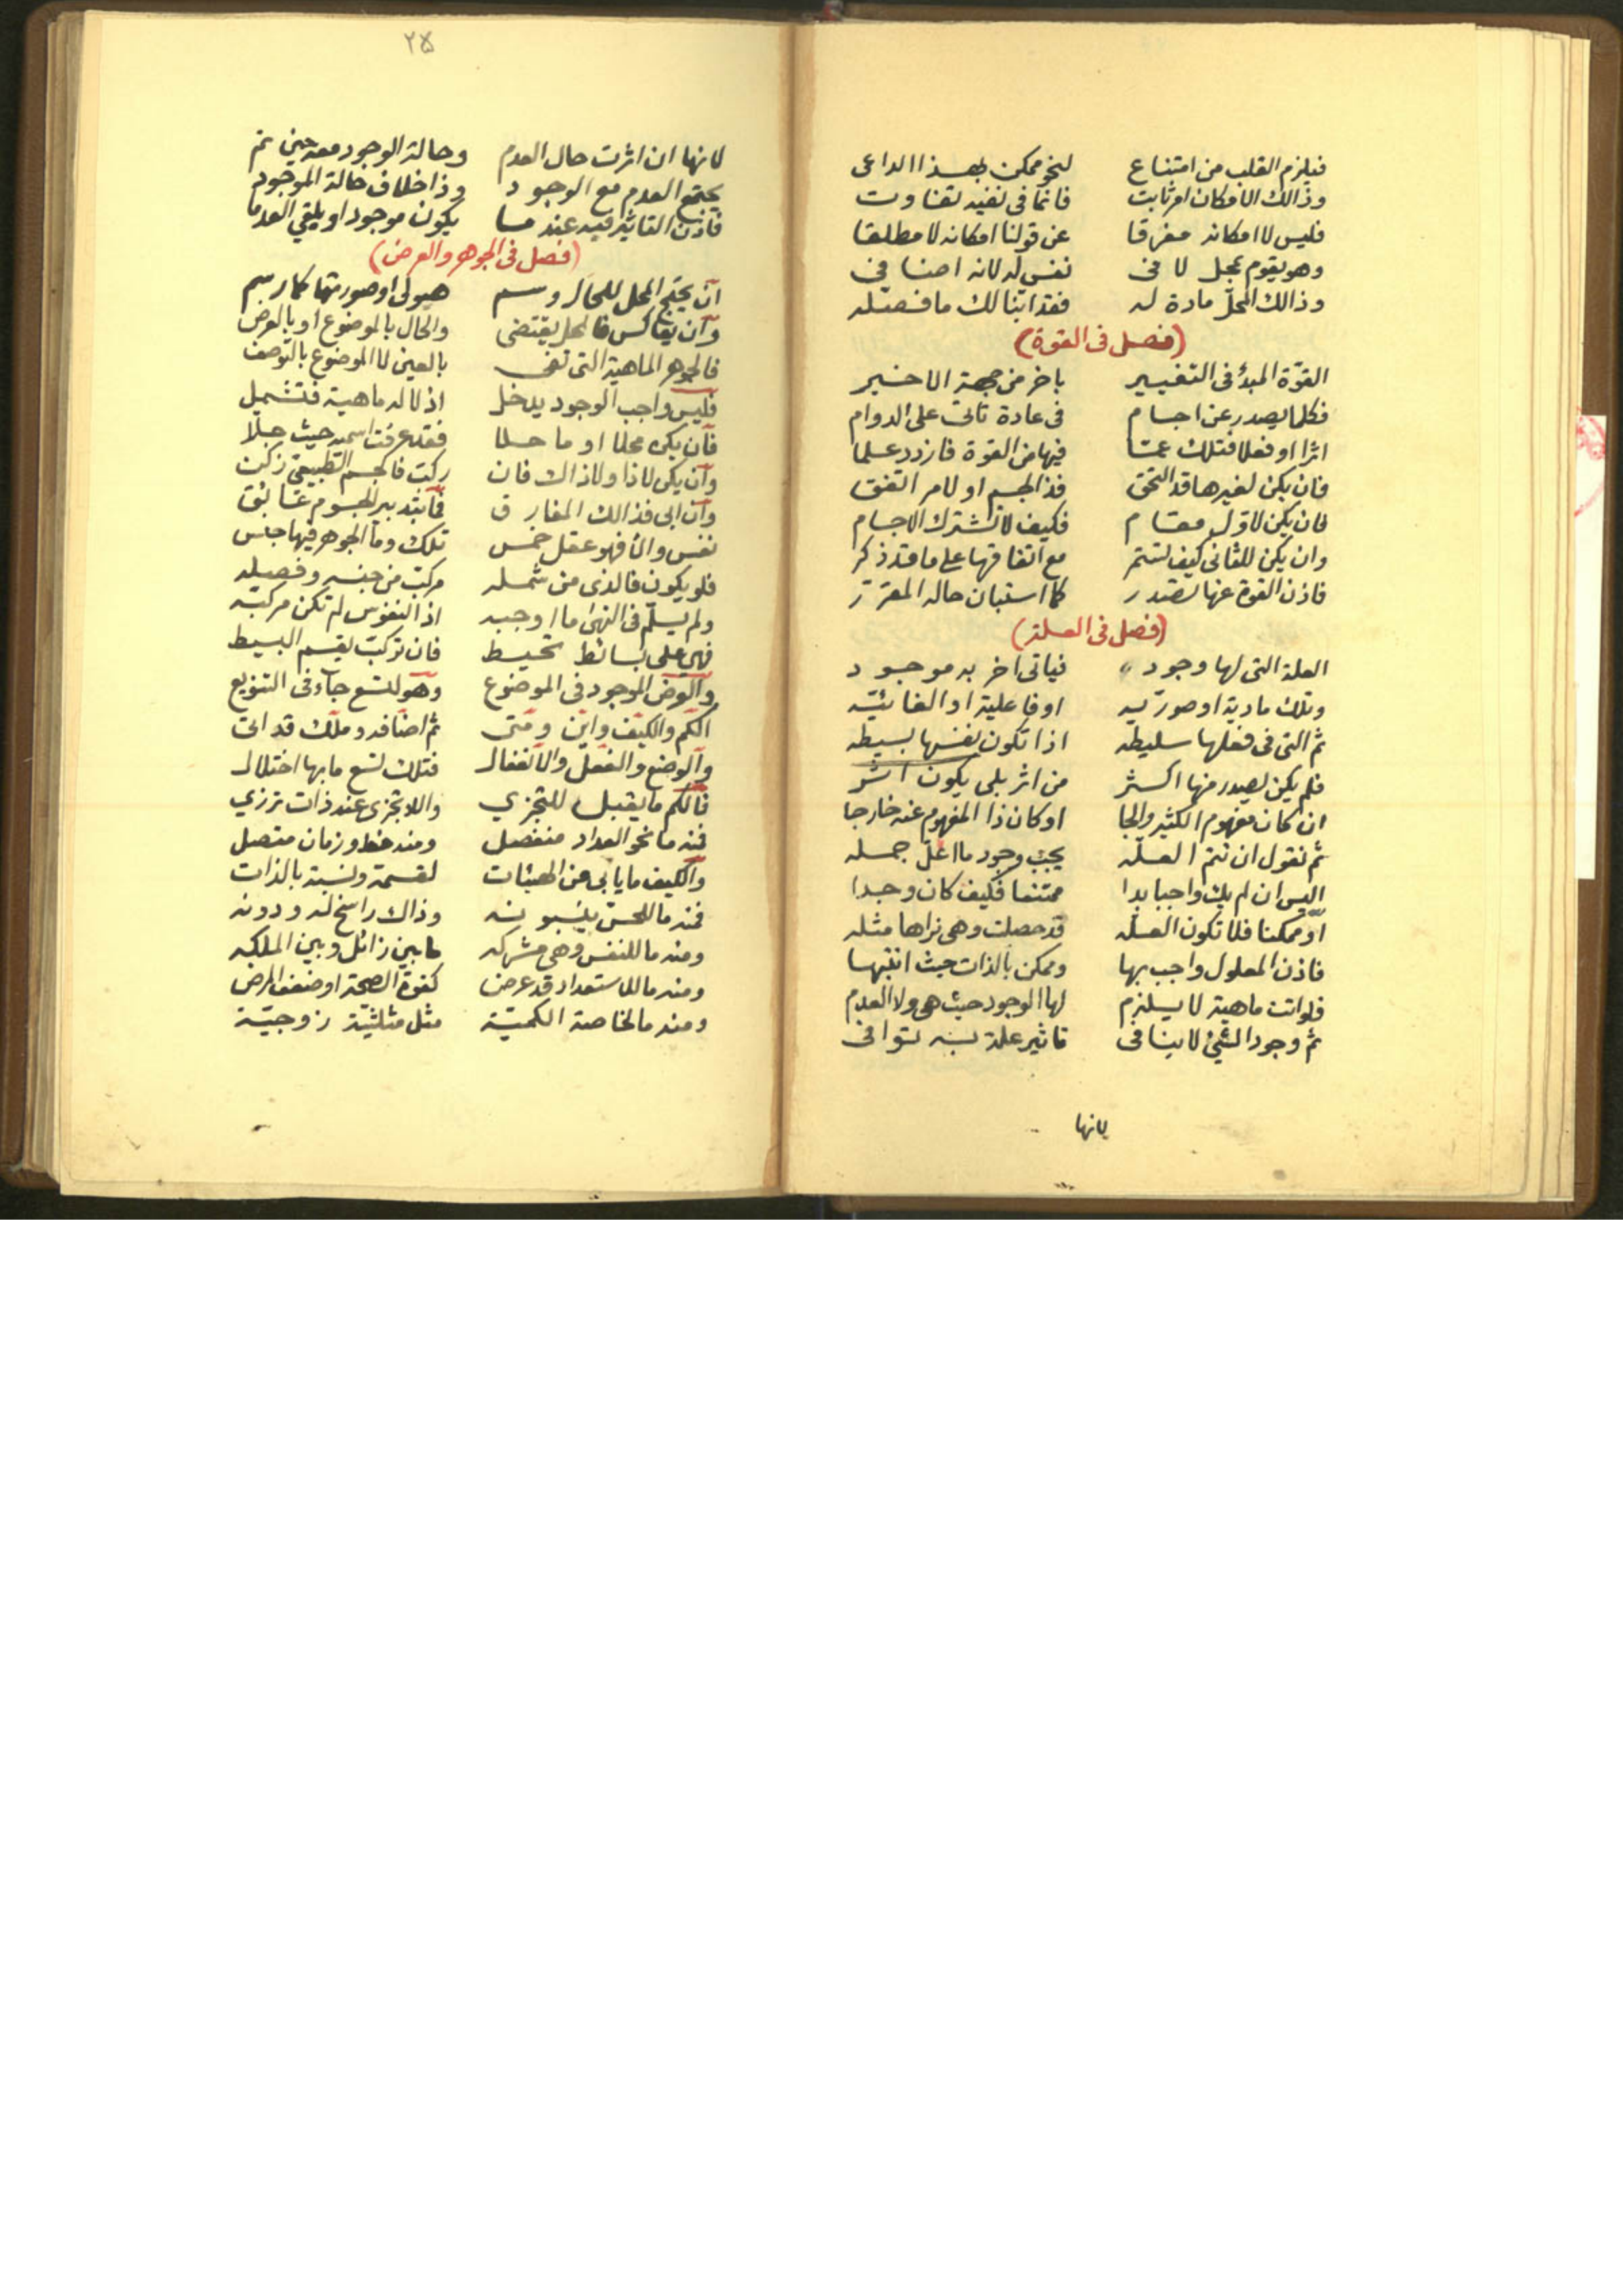 فيلزم القلب من امتناع لنحو ممكن بهذا الداعى
وذالك الامكان امر ثابت فانما فى نفيه تفاوت
فليس لا امكانه مفرقا عن قولنا امكانه لا مطلقا
وهو يقوم بمحل لا فى نفس له لانه اضافى
وذالك المحل مادة له فقد ابنا لك ما فصله
(فصل فى القوة)
القوة المبدأ فى التغيير باخر من جهة الاخير
فكلما يصدر عن اجسام فى عادة تاتى على الدوام
اثرا او فعلا فتلك عما فيها من القوة فازدد علما
فان يكن لغيرها قد التحق فذا الجسم او لامر اتفق
فان يكن لاول مقام فكيف لا تشترك الاجسام
وان يكن للثانى كيف تستتم مع اتفاقها على ما قد ذكر
فاذن القوة عنها تصدر كما استبان حاله المقرر
(فصل فى العلة)
العلة التى لها وجود فياتى اخر به موجود
وتلك مادية او صورية او فاعلية او الغائية
ثم التى فى فعلها سليطه اذا تكون نفسها بسيطه
فلم يكن يصدر منها اكثر من اثر بلى يكون اثر
ان كان مفهوم الكثير والجا او كان ذا المفهوم عنه خارجا
ثم نقول ان تتم العلة يجب وجود ما اعل جمله
اليس ان لم يك واجبا بدا ممتنعا فكيف كان وجدا
او ممكنا فلا تكون العله قد حصلت وهى نراها مثله
فاذن المعلول واجب بها وممكن بالذات حيث انتبها
فلو اتت ماهية لا يسلزم لها الوجود حيث هى ولا العدم
ثم وجود الشئ لا ينافى تاثير علة به توافى
لانها
٢٥
لانها ان اثرت حال العدم وحالة الوجود معه حين تم
يجتمع العدم مع الوجود وذا خلاف حالة الموجود
فاذن التاثير فيه عند ما يكون موجودا او يلقى العدما
(فصل فى الجوهر والعرض)
ان يحتج المحل للحال وسم هيولى او صورتها كما رسم
وان يعاكس فالمحل يقتضى والحال بالموضوع او بالعرض
فالجوهر الماهية التى تفى بالعين لا الموضوع بالتوصف
فليس واجب الوجود يدخل اذ لا له ماهية فتشمل
فان يكن محلا او ما حلا فقد عرفت اسمه حيث جلا
وان يكن لا ذا ولا ذاك فان ركبت فالجسم الطبيعى زكن
وان ابى فذالك المفارق فما بتدبير الجسوم عائق
نفس والا فهو عقل خمس تلك وما الجوهر فيها جنس
فلو يكون فالذى من شمله مركب من جنسه وفصله
ولم يسلم فى النهى ما اوجبه اذ النفوس لم تكن مركبه
فهى على بسائط تحيط فان تركب يقسم البسيط
والعرض الموجود فى الموضوع وهو لتسع جاء فى التنويع
الكم والكيف واين ومتى ثم اضافه وملك قد اتى
والوضع والفعل والانفعال فتلك تسع ما بها اختلال
فالكم ما يقبل للتجزي واللاتجزى عند ذات ترزي
فمنه ما نحو العداد منفصل ومنه خط وزمان متصل
والكيف ما يابى عن الهيئات لقسمة ونسبة بالذات
فمنه ما للحس ينسبونه وذاك راسخ له ودونه
ومنه ما للنفس وهى مشركه ما بين زائل وبين الملكه
ومنه ما للاستعداد قد عرض كقوة الصحة او ضعف المرض
ومنه ما لخاصة الكمية مثل مثلثية زوجية